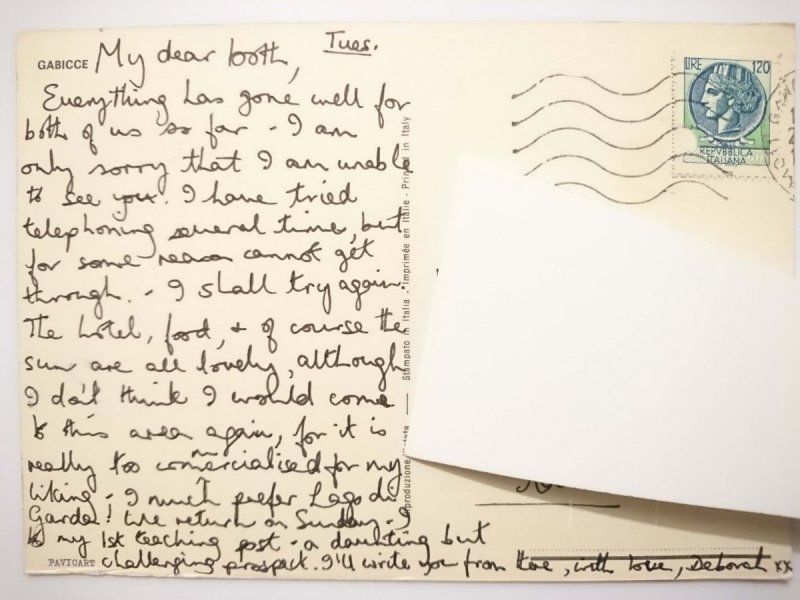 GABICCE
Tues.
My dear both,
Everything has gone well for
both of us so far - I am
only sorry that I am unable
to see you. I have tried
telephoning several times, but
for some reason cannot get
through. - I shall try again.
The hotel, food, + of course the
sun are all lovely, although
I don't think I would come
to this area again, for it is
really too commercialised for my
liking - I much prefer Lago di
Garda! We return on Sunday - I
to my 1st teaching post - a daunting but
challenging prospect. I'll write you from there, with love, Deborah xx
PAVICART
Stampato in Italia - Imprimée en Italie - Printed in Italy
LIRE 120
REPVBBLICA
ITALIANA